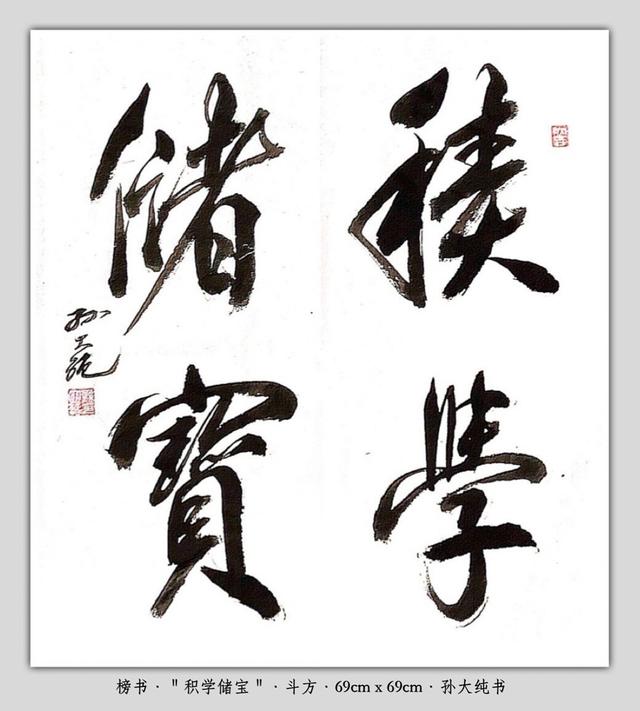 積學
儲寶
孙大纯
榜书 · "积学储宝" · 斗方 · 69cm x 69cm · 孙大纯书